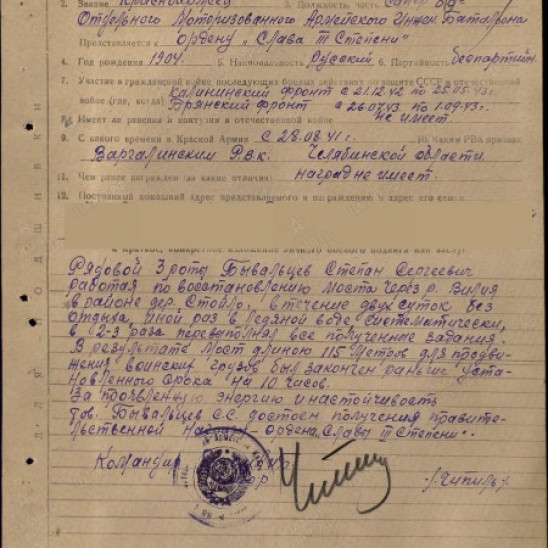 2. Звание Красноармеец 3. Должность, часть сапер
Отдельного Моторизованного Армейского Инжен. Батальона
Представляется к Ордену „Слава III Степени"
4. Год рождения 1904. 5. Национальность Русский 6. Партийность беспартийн.
7. Участие в гражданской войне, последующих боевых действиях по защите СССР и отечественной
Калининский фронт с 21.12.42 по 25.05.43г.
войне (где, когда) Брянский фронт с 26.07.43 по 1.09.43г.
8. Имеет ли ранения и контузии в отечественной войне не имеет.
9. С какого времени в Красной Армии с 28.08.41г. 10. Каким РВК призван
Варгалинским Р.В.К. Челябинской области.
11. Чем ранее награжден (за какие отличия) наград не имеет.
12. Постоянный домашний адрес представляемого к награждению и адрес его семьи
I. Краткое, конкретное изложение личного боевого подвига или заслуг
Рядовой 3 роты Бывальцев Степан Сергеевич
работая по восстановлению моста через р. Вилия
в районе дер. Стойло, в течение двух суток без
отдыха, иной раз в ледяной воде систематически,
в 2-3 раза перевыполнял все полученные задания.
В результате мост длиною 115 метров для продви-
жения воинских грузов был закончен раньше уста-
новленного срока на 10 часов.
За проявленную энергию и настойчивость
тов. Бывальцев С.С. достоин получения правите-
льственной награды – Ордена „Славы III Степени".
Командир
/Чипиль/